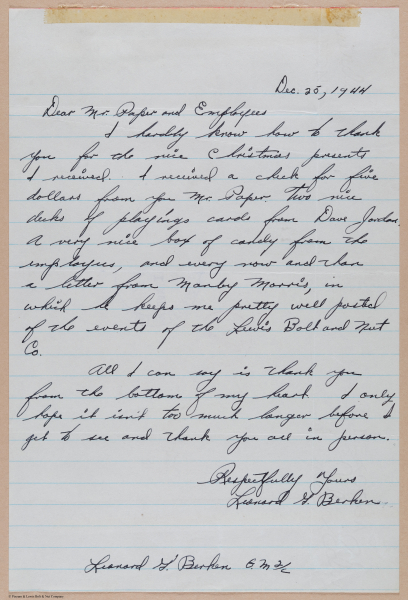 Dec. 25, 1944
Dear Mr. Paper and Employees
I hardly know how to thank
you for the nice Christmas presents
I received. I received a check for five
dollars from you Mr. Paper. two nice
decks of playings cards from Dave Jordan.
A very nice box of candy from the
employees, and every now and than
a letter from Manby Morris, in
which he keeps me pretty well posted
of the events of the Lewis Bolt and Nut
Co.
All I can say is thank you
from the bottom of my heart I only
hope it isn't too much longer before I
get to see and thank you all in person.
Respectfully Yours
Leonard G. Berken
Leonard G. Berken G.M 2/c